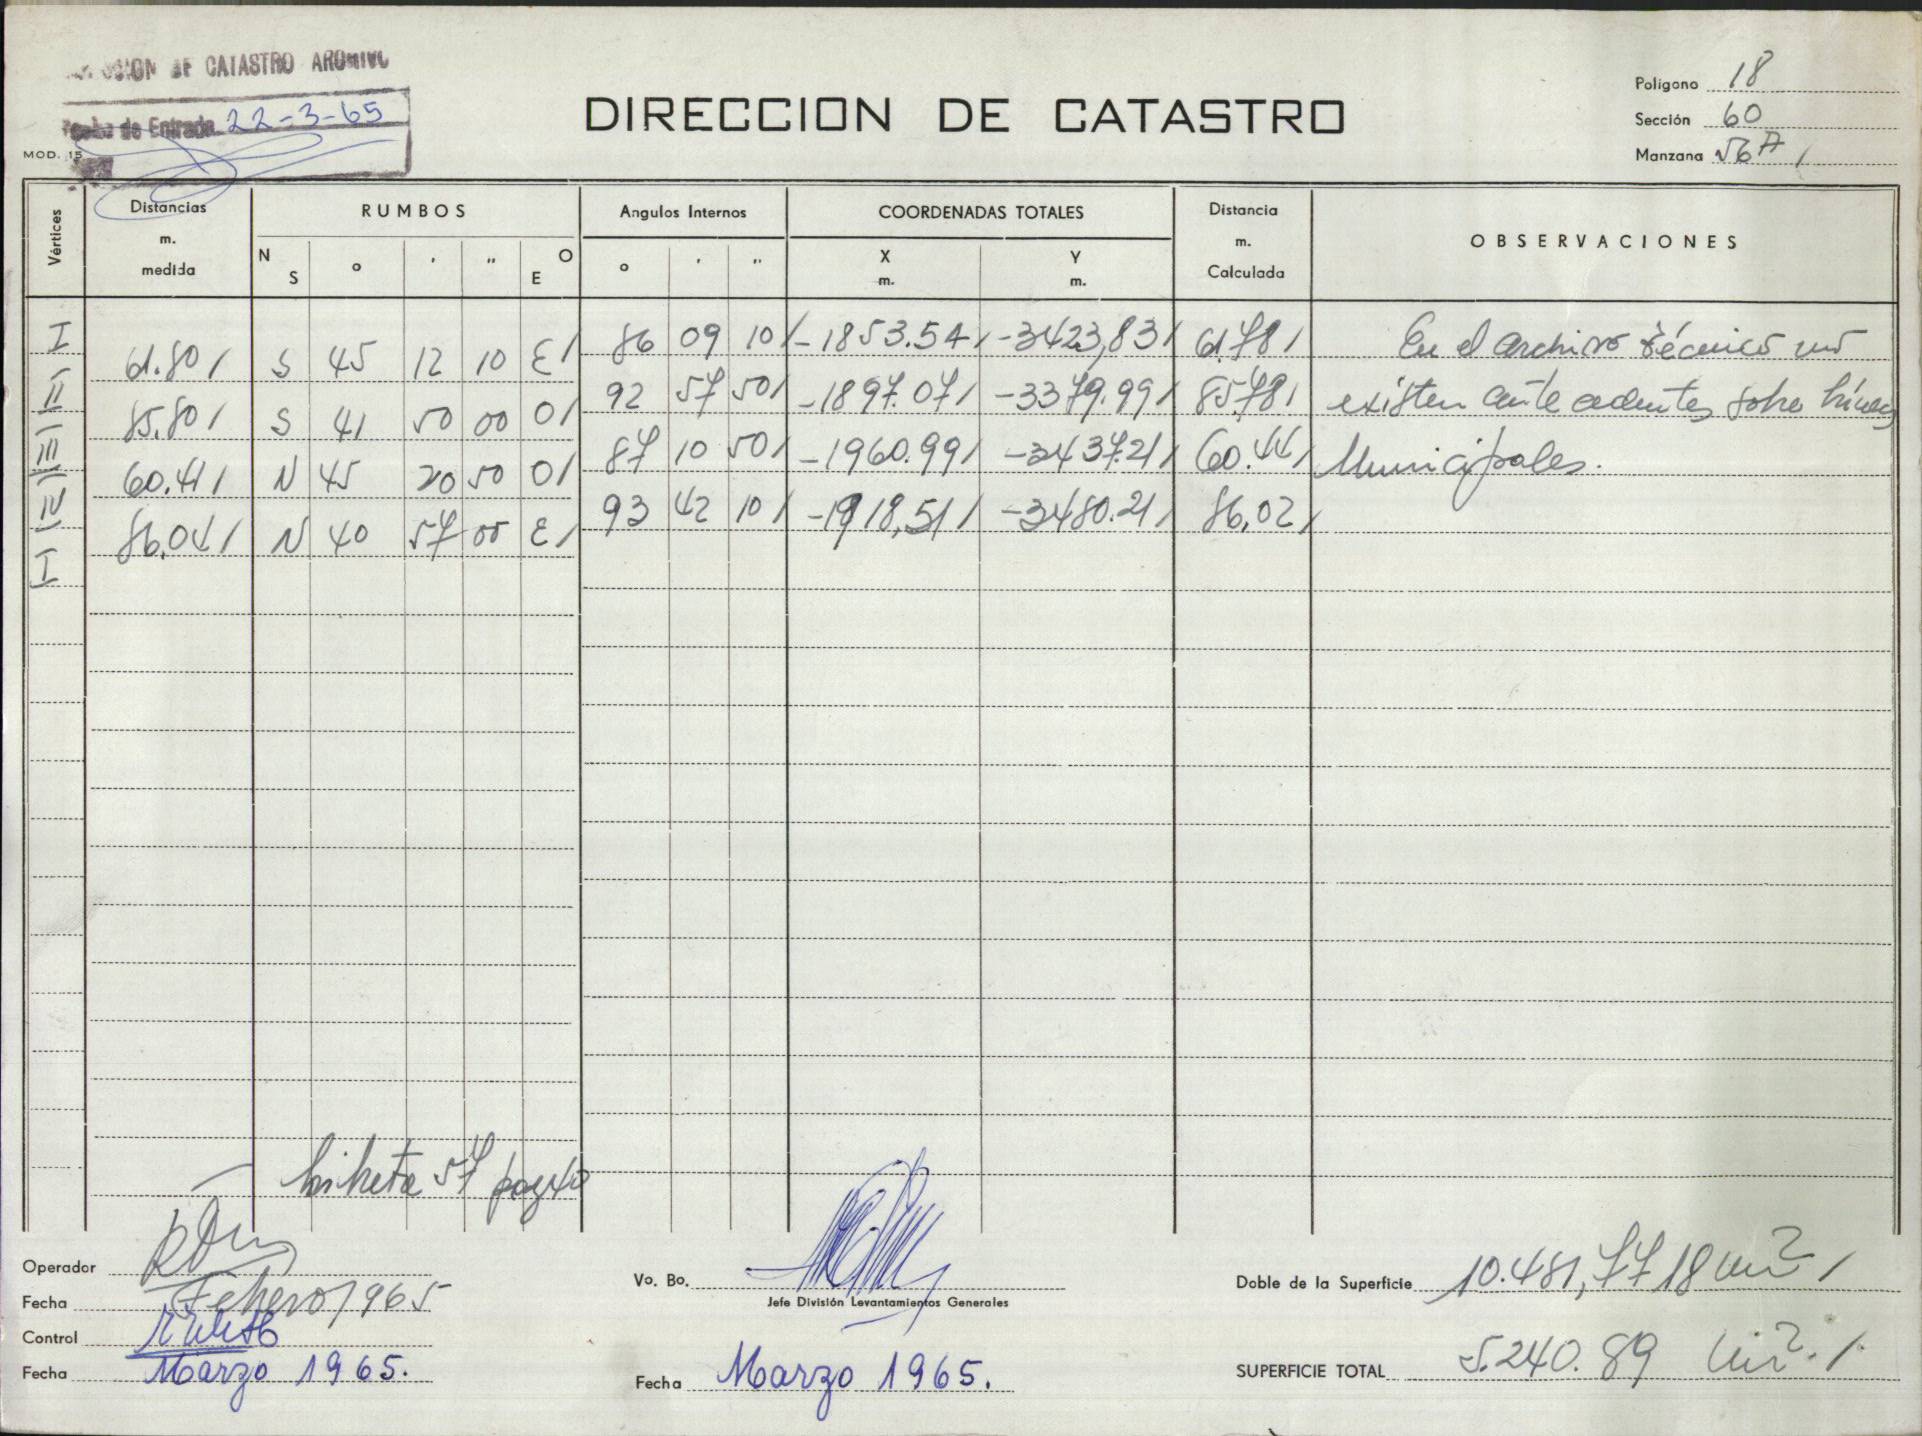 DE CATASTRO ARCHIVO
Fecha de Entrada 22-3-65
MOD. 15
DIRECCION DE CATASTRO
Poligono 18
Sección 60
Manzana 56A /
Vértices
Distancias m. medida
RUMBOS
N S o ' " O E
Angulos Internos
o ' "
COORDENADAS TOTALES
X m. Y m.
Distancia m. Calculada
OBSERVACIONES
I 86 09 10/ -1853.54/ -3423,83/ 61.78/ En el archivo técnico no
61.80/ S 45 12 10 E/
II 92 57 50/ -1897.07/ -3379.99/ 85.78/ existen antecedentes sobre líneas
85.80/ S 41 50 00 O/
III 87 10 50/ -1960.99/ -3437.21/ 60.44/ Municipales.
60.41/ N 45 20 50 O/
IV 93 42 10/ -1918,51/ -3480.21/ 86,02/
86.04/ N 40 57 00 E/
I
libreta 57 pag 40
Operador
Fecha Febrero/965
Control
Fecha Marzo 1965.
Vo. Bo.
Jefe División Levantamientos Generales
Fecha Marzo 1965.
Doble de la Superficie 10.481,7718 m² /
SUPERFICIE TOTAL 5.240.89 m². /